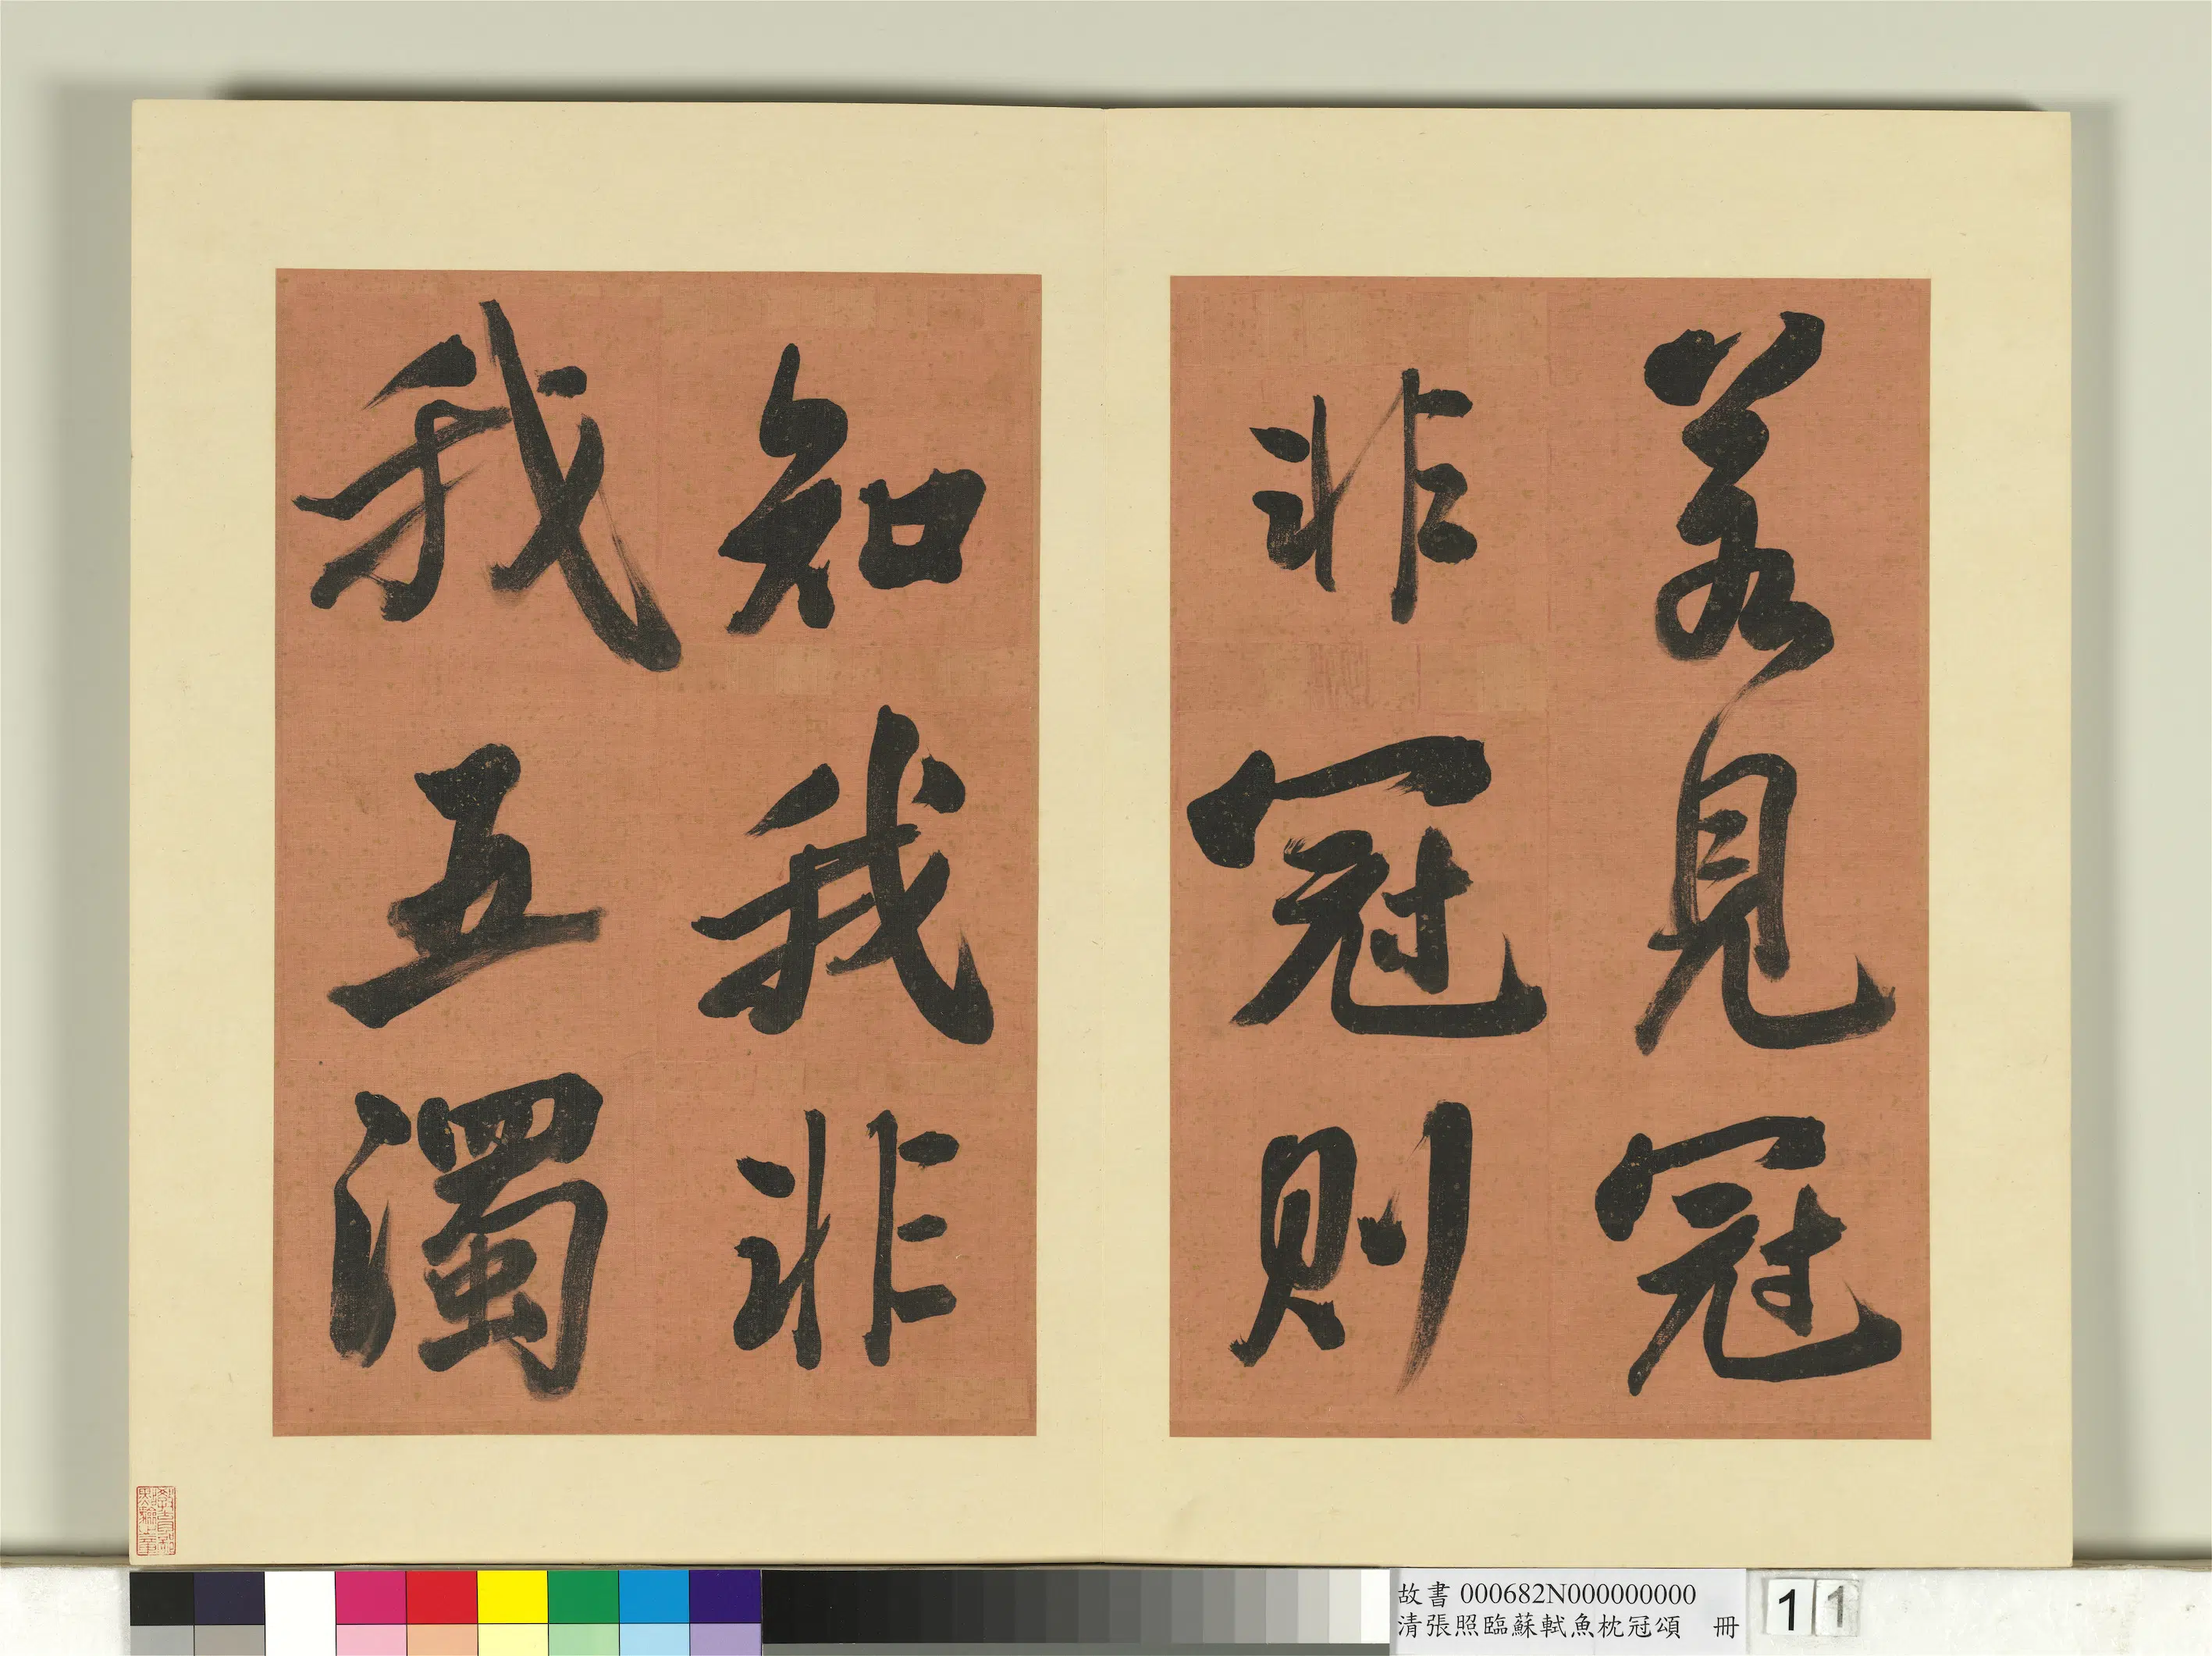 若見冠
非冠則
知我非
我五濁
故書 000682N000000000
清張照臨蘇軾魚枕冠頌 冊
11